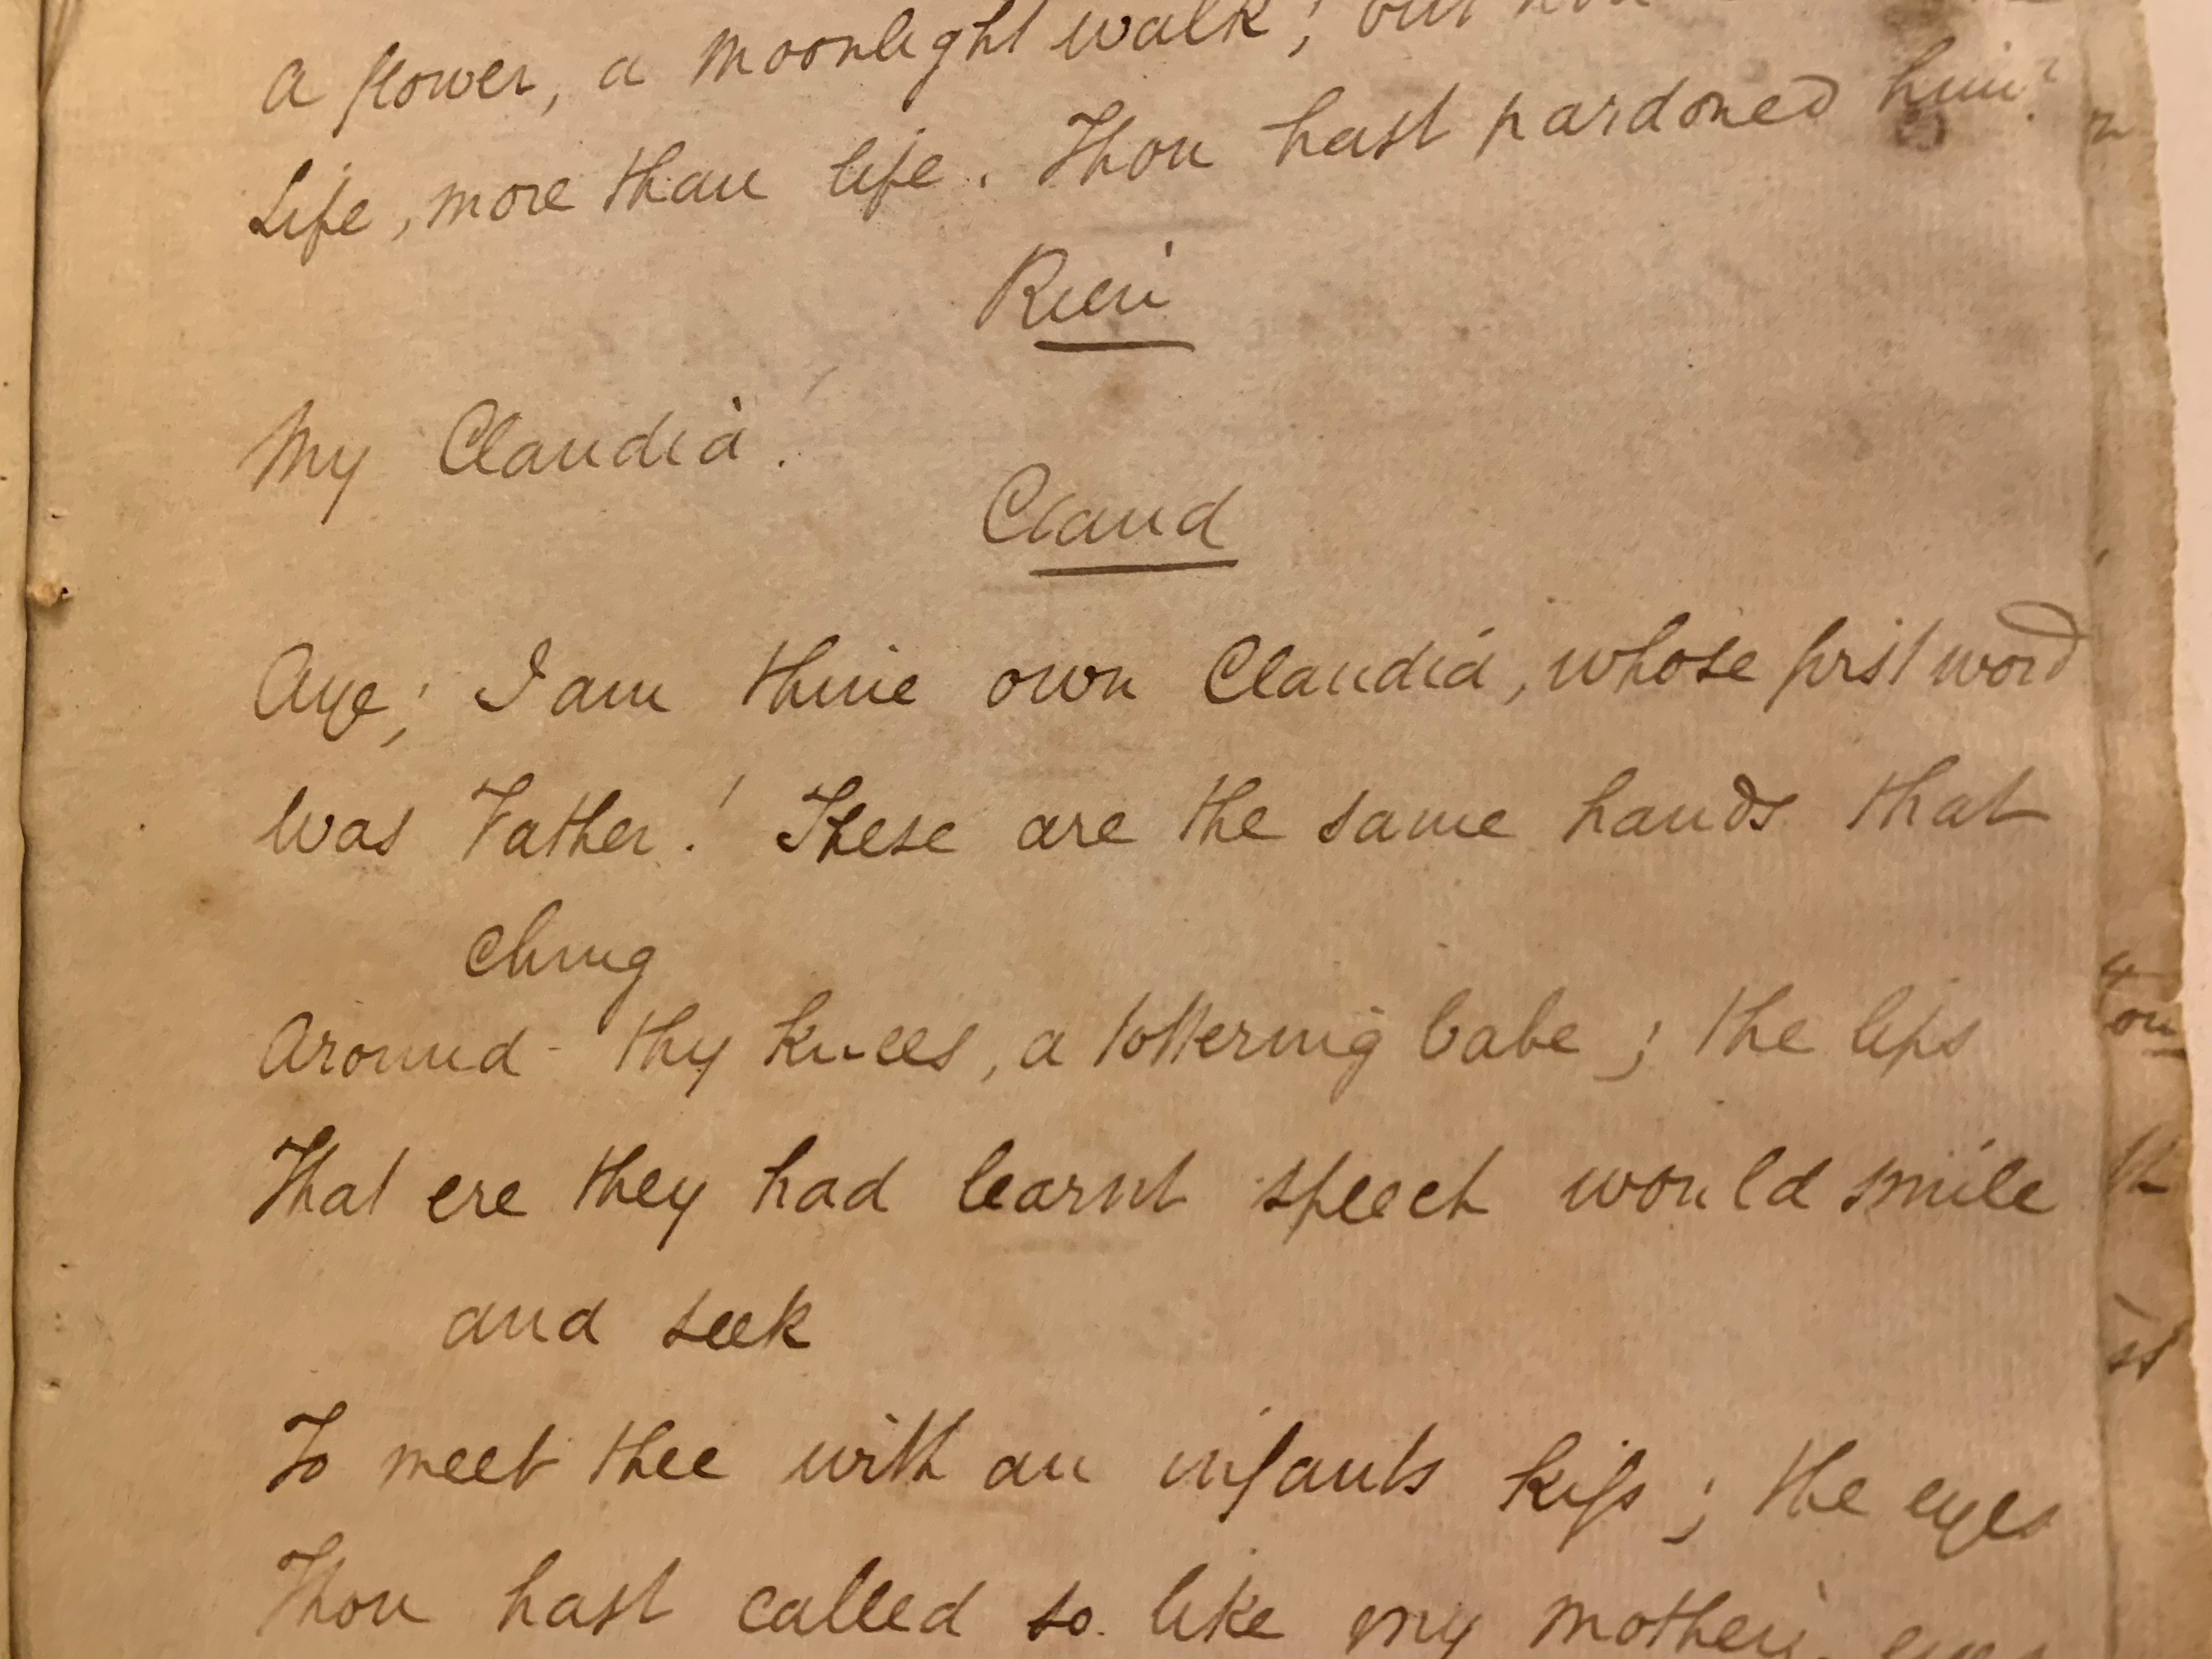 a flower, a moonlight walk; but
Life, more than life. Thou hast pardoned him?
Rieri
My Claudia!
Claud
Aye; I am thine own Claudia, whose first word
was Father! These are the same hands that
clung
Around thy knees, a tottering babe; the lips
That ere they had learnt speech would smile
and seek
To meet thee with an infants kiss; the eyes
Thou hast called so like my mothers eyes